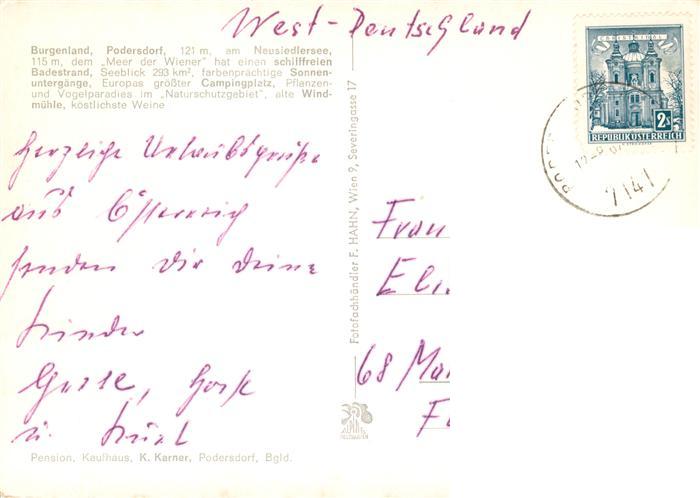 West-Deutschland
Burgenland, Podersdorf, 121 m, am Neusiedlersee,
115 m, dem „Meer der Wiener" hat einen schilffreien
Badestrand, Seeblick 293 km², farbenprächtige Sonnen-
untergänge, Europas größter Campingplatz, Pflanzen-
und Vogelparadies im „Naturschutzgebiet", alte Wind-
mühle, köstlichste Weine
CHRISTKINDL
2S
REPUBLIK ÖSTERREICH
7141
Herzliche Urlaubsgrüße
aus Österreich
senden Dir Deine
Kinder
Horst
u.
Fotofachhändler F. HAHN, Wien 9, Severingasse 17
Frau
68 Ma
Pension, Kaufhaus, K. Karner, Podersdorf, Bgld.